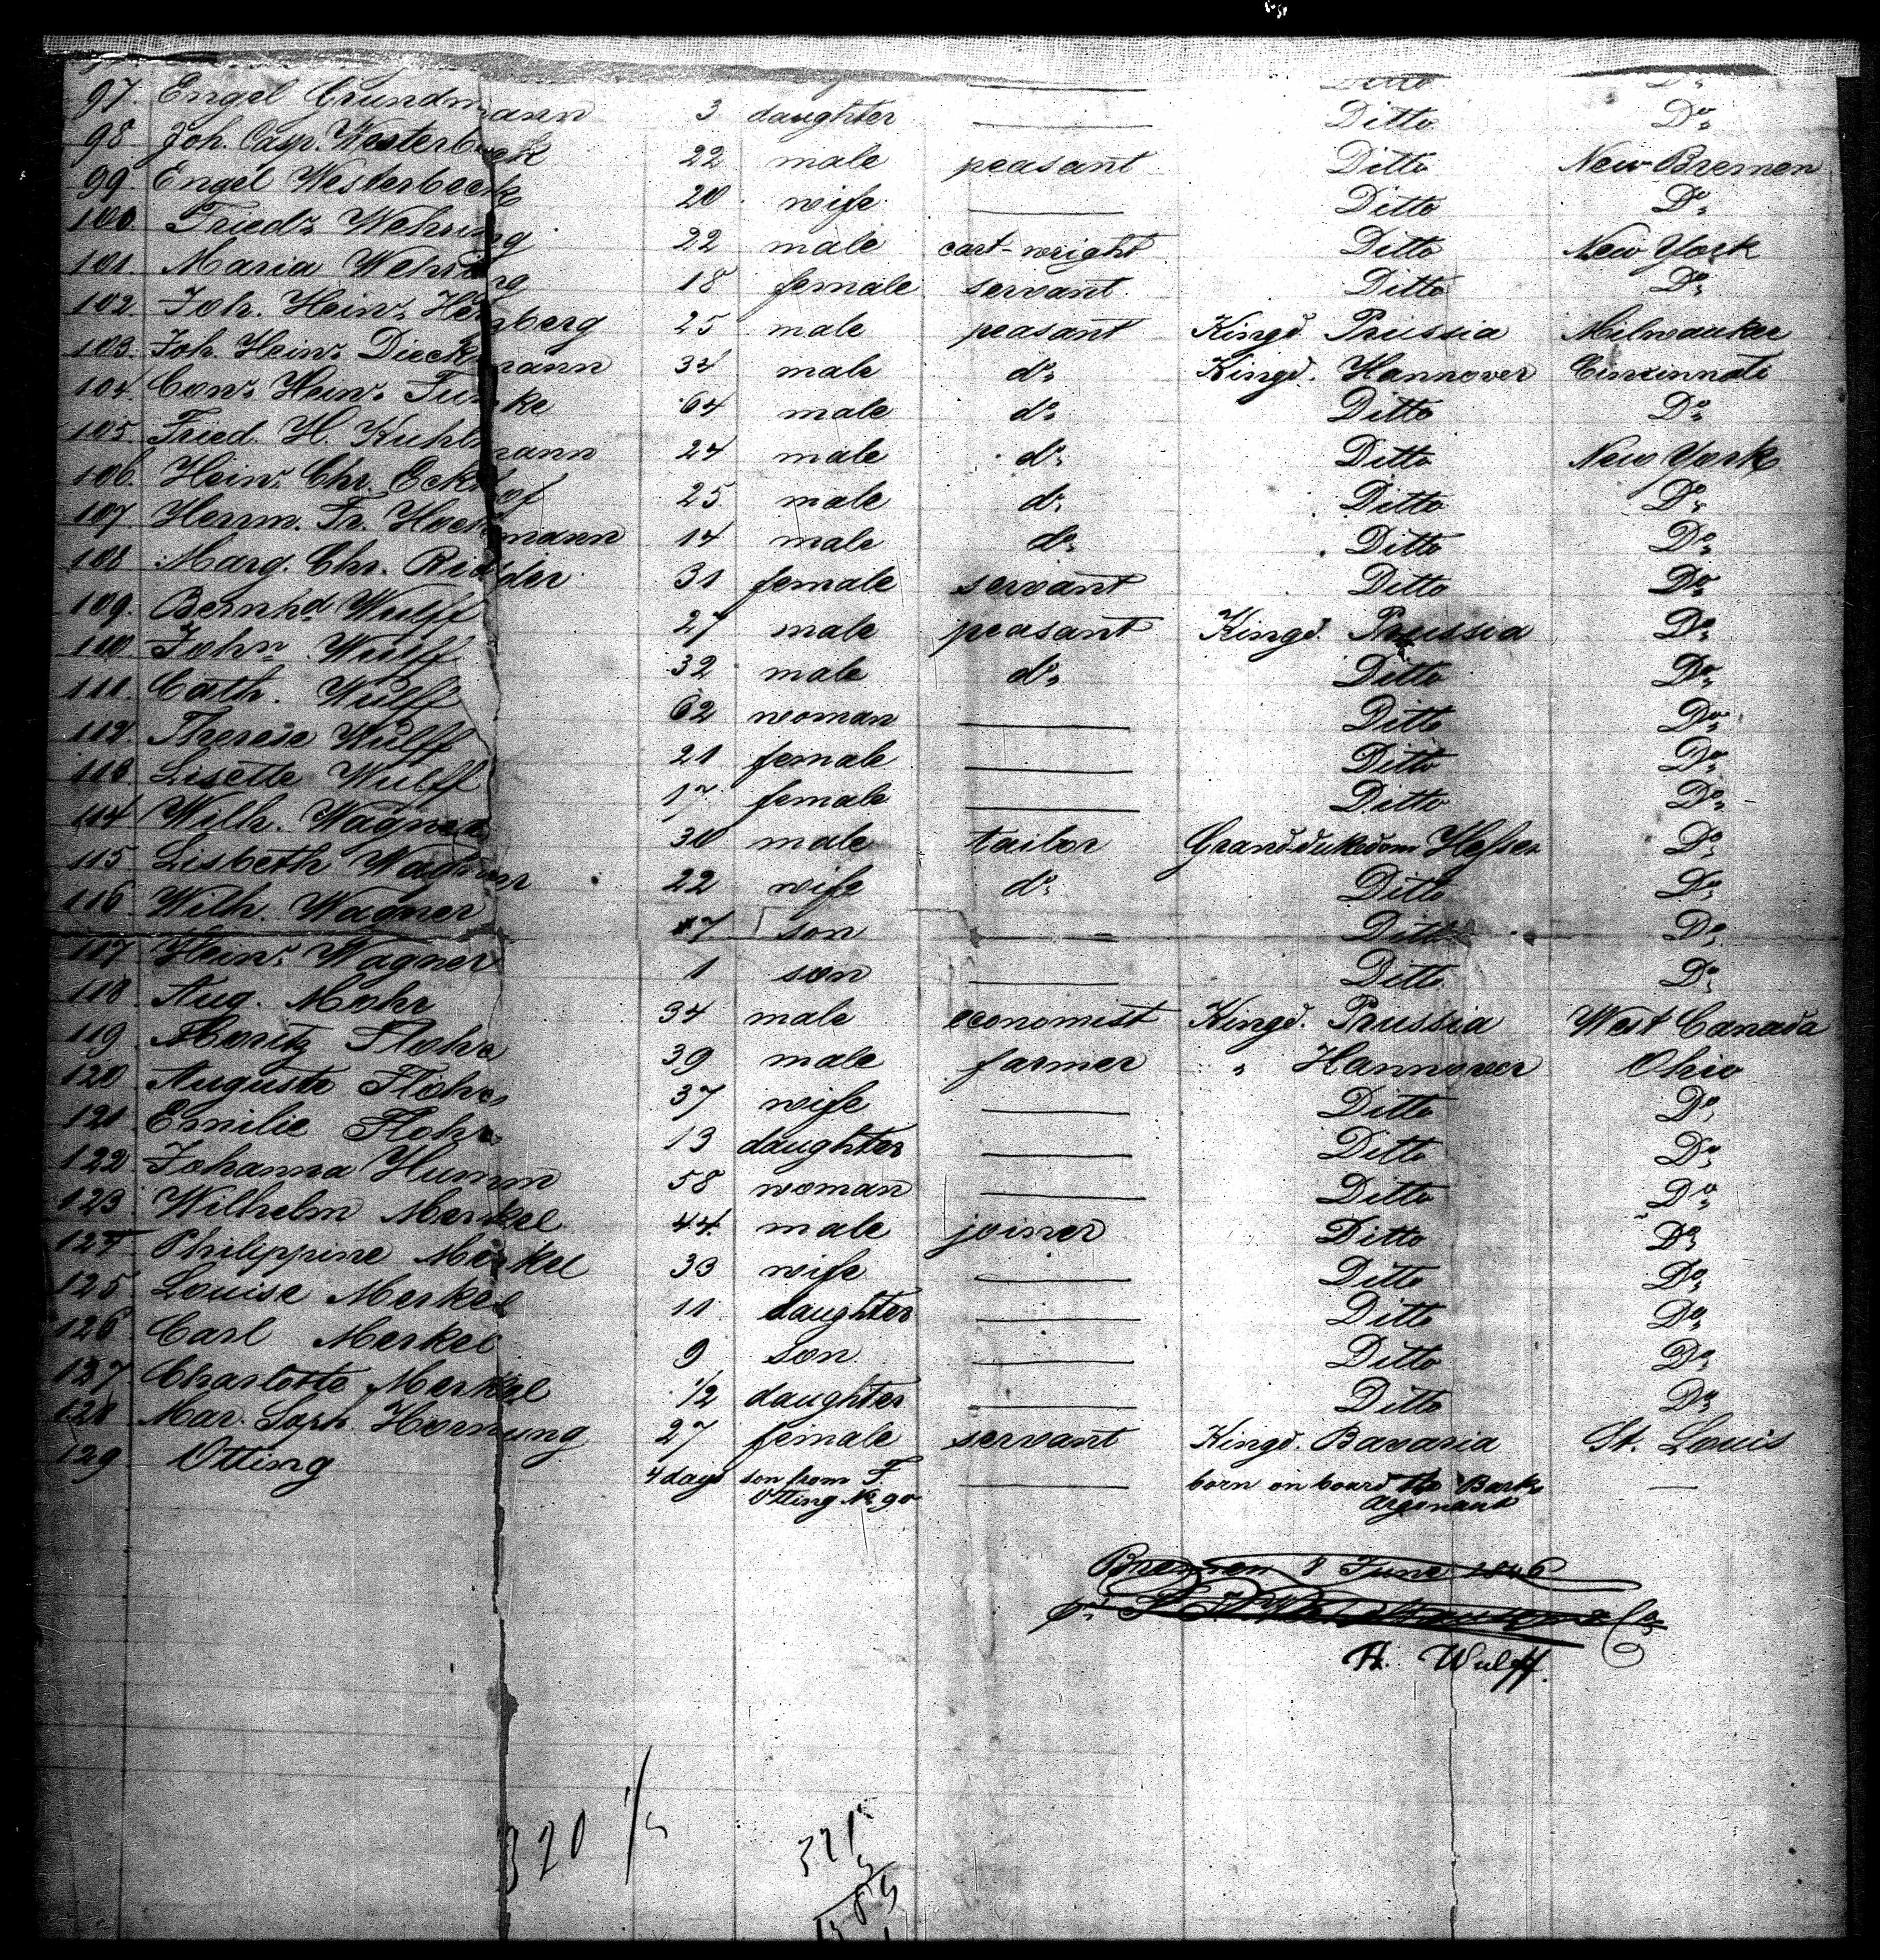 97. Engel Grundmann 3 daughter Ditto Do
98 Joh. Casp. Westerbeck 22 male peasant Ditto New-Bremen
99 Engel Westerbeck 20 wife Ditto Do
100. Friedr. Wehring 22 male cart-wright Ditto New York
101. Maria Wehring 18 female servant Ditto Do
102. Joh. Heinr. 25 male peasant Kingd. Prussia Milwaukee
103. Joh. Heinr. Dieckmann 34 male do Kingd. Hannover Cincinnati
104. Conr. Heinr. Funke 64 male do Ditto Do
105 Fried. H. Kuhlmann 24 male do Ditto New York
106. Heinr. Chr. Eckhof 25 male do Ditto Do
107 Herrm. Fr. 14 male do Ditto Do
108 Marg. Chr. Ridder 31 female servant Ditto Do
109. Bernhd. Wulff 27 male peasant Kingd. Prussia Do
110. John Wulff 32 male do Ditto Do
111 Cath. Wulff 62 woman Ditto Do
112 Therese Wulff 21 female Ditto Do
113 Lisette Wulff 17 female Ditto Do
114 Wilh. Wagner 30 male tailor Grand-dukedom Hessen Do
115 Lisbeth Wagner 22 wife do Ditto Do
116 Wilh. Wagner 7 son Ditto Do
117 Heinr. Wagner 1 son Ditto Do
118 Aug. Mohr 34 male economist Kingd. Prussia West Canada
119 Moritz Flohr 39 male farmer " Hannover Ohio
120 Auguste Flohr 37 wife Ditto Do
121 Emilie Flohr 13 daughter Ditto Do
122 Johanna Humm 58 woman Ditto Do
123 Wilhelm Merkel 44 male joiner Ditto Do
124 Philippine Merkel 33 wife Ditto Do
125 Louise Merkel 11 daughter Ditto Do
126 Carl Merkel 9 son Ditto Do
127 Charlotte Merkel 1/2 daughter Ditto Do
128 Mar. Soph. Hornung 27 female servant Kingd. Bavaria St. Louis
129 Otting 4 days son from F. Otting No 90 born on board the Bark Argonaut
Bremen 8 June 1846
H. Wulff.
320